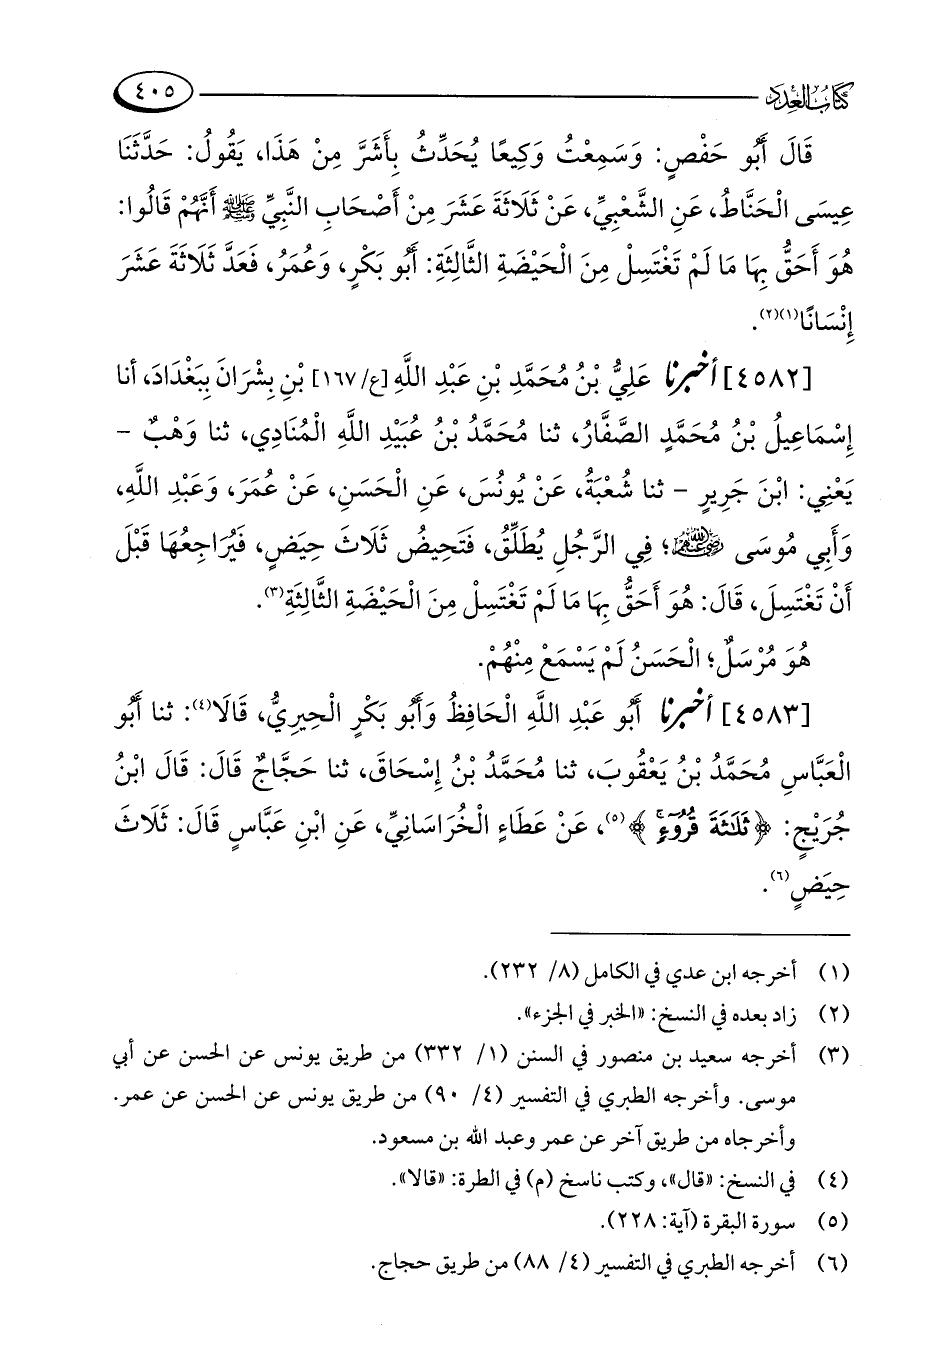 كتاب العدد ٤٠٥
قَالَ أَبُو حَفْصٍ: وَسَمِعْتُ وَكِيعًا يُحَدِّثُ بِأَشَرَّ مِنْ هَذَا، يَقُولُ: حَدَّثَنَا
عِيسَى الْحَنَّاطُ، عَنِ الشَّعْبِيِّ، عَنْ ثَلَاثَةَ عَشَرَ مِنْ أَصْحَابِ النَّبِيِّ ﷺ أَنَّهُمْ قَالُوا:
هُوَ أَحَقُّ بِهَا مَا لَمْ تَغْتَسِلْ مِنَ الْحَيْضَةِ الثَّالِثَةِ: أَبُو بَكْرٍ، وَعُمَرُ، فَعَدَّ ثَلَاثَةَ عَشَرَ
إِنْسَانًا(١)(٢).
[٤٥٨٢] أخبرنا عَلِيُّ بْنُ مُحَمَّدِ بْنِ عَبْدِ اللَّهِ [ع/١٦٧] بْنِ بِشْرَانَ بِبَغْدَادَ، أنا
إِسْمَاعِيلُ بْنُ مُحَمَّدٍ الصَّفَّارُ، ثنا مُحَمَّدُ بْنُ عُبَيْدِ اللَّهِ الْمُنَادِي، ثنا وَهْبٌ -
يَعْنِي: ابْنَ جَرِيرٍ - ثنا شُعْبَةُ، عَنْ يُونُسَ، عَنِ الْحَسَنِ، عَنْ عُمَرَ، وَعَبْدِ اللَّهِ،
وَأَبِي مُوسَى رضي الله عنهم؛ فِي الرَّجُلِ يُطَلِّقُ، فَتَحِيضُ ثَلَاثَ حِيَضٍ، فَيُرَاجِعُهَا قَبْلَ
أَنْ تَغْتَسِلَ، قَالَ: هُوَ أَحَقُّ بِهَا مَا لَمْ تَغْتَسِلْ مِنَ الْحَيْضَةِ الثَّالِثَةِ(٣).
هُوَ مُرْسَلٌ؛ الْحَسَنُ لَمْ يَسْمَعْ مِنْهُمْ.
[٤٥٨٣] أخبرنا أَبُو عَبْدِ اللَّهِ الْحَافِظُ وَأَبُو بَكْرٍ الْحِيرِيُّ، قَالَا(٤): ثنا أَبُو
الْعَبَّاسِ مُحَمَّدُ بْنُ يَعْقُوبَ، ثنا مُحَمَّدُ بْنُ إِسْحَاقَ، ثنا حَجَّاجٌ قَالَ: قَالَ ابْنُ
جُرَيْجٍ: ﴿ثَلَاثَةَ قُرُوءٍ﴾(٥)، عَنْ عَطَاءٍ الْخُرَاسَانِيِّ، عَنِ ابْنِ عَبَّاسٍ قَالَ: ثَلَاثَ
حِيَضٍ(٦).
(١) أخرجه ابن عدي في الكامل (٨/ ٢٣٢).
(٢) زاد بعده في النسخ: «الخبر في الجزء».
(٣) أخرجه سعيد بن منصور في السنن (١/ ٣٣٢) من طريق يونس عن الحسن عن أبي
موسى. وأخرجه الطبري في التفسير (٤/ ٩٠) من طريق يونس عن الحسن عن عمر.
وأخرجاه من طريق آخر عن عمر وعبد الله بن مسعود.
(٤) في النسخ: «قال»، وكتب ناسخ (م) في الطرة: «قالا».
(٥) سورة البقرة (آية: ٢٢٨).
(٦) أخرجه الطبري في التفسير (٤/ ٨٨) من طريق حجاج.